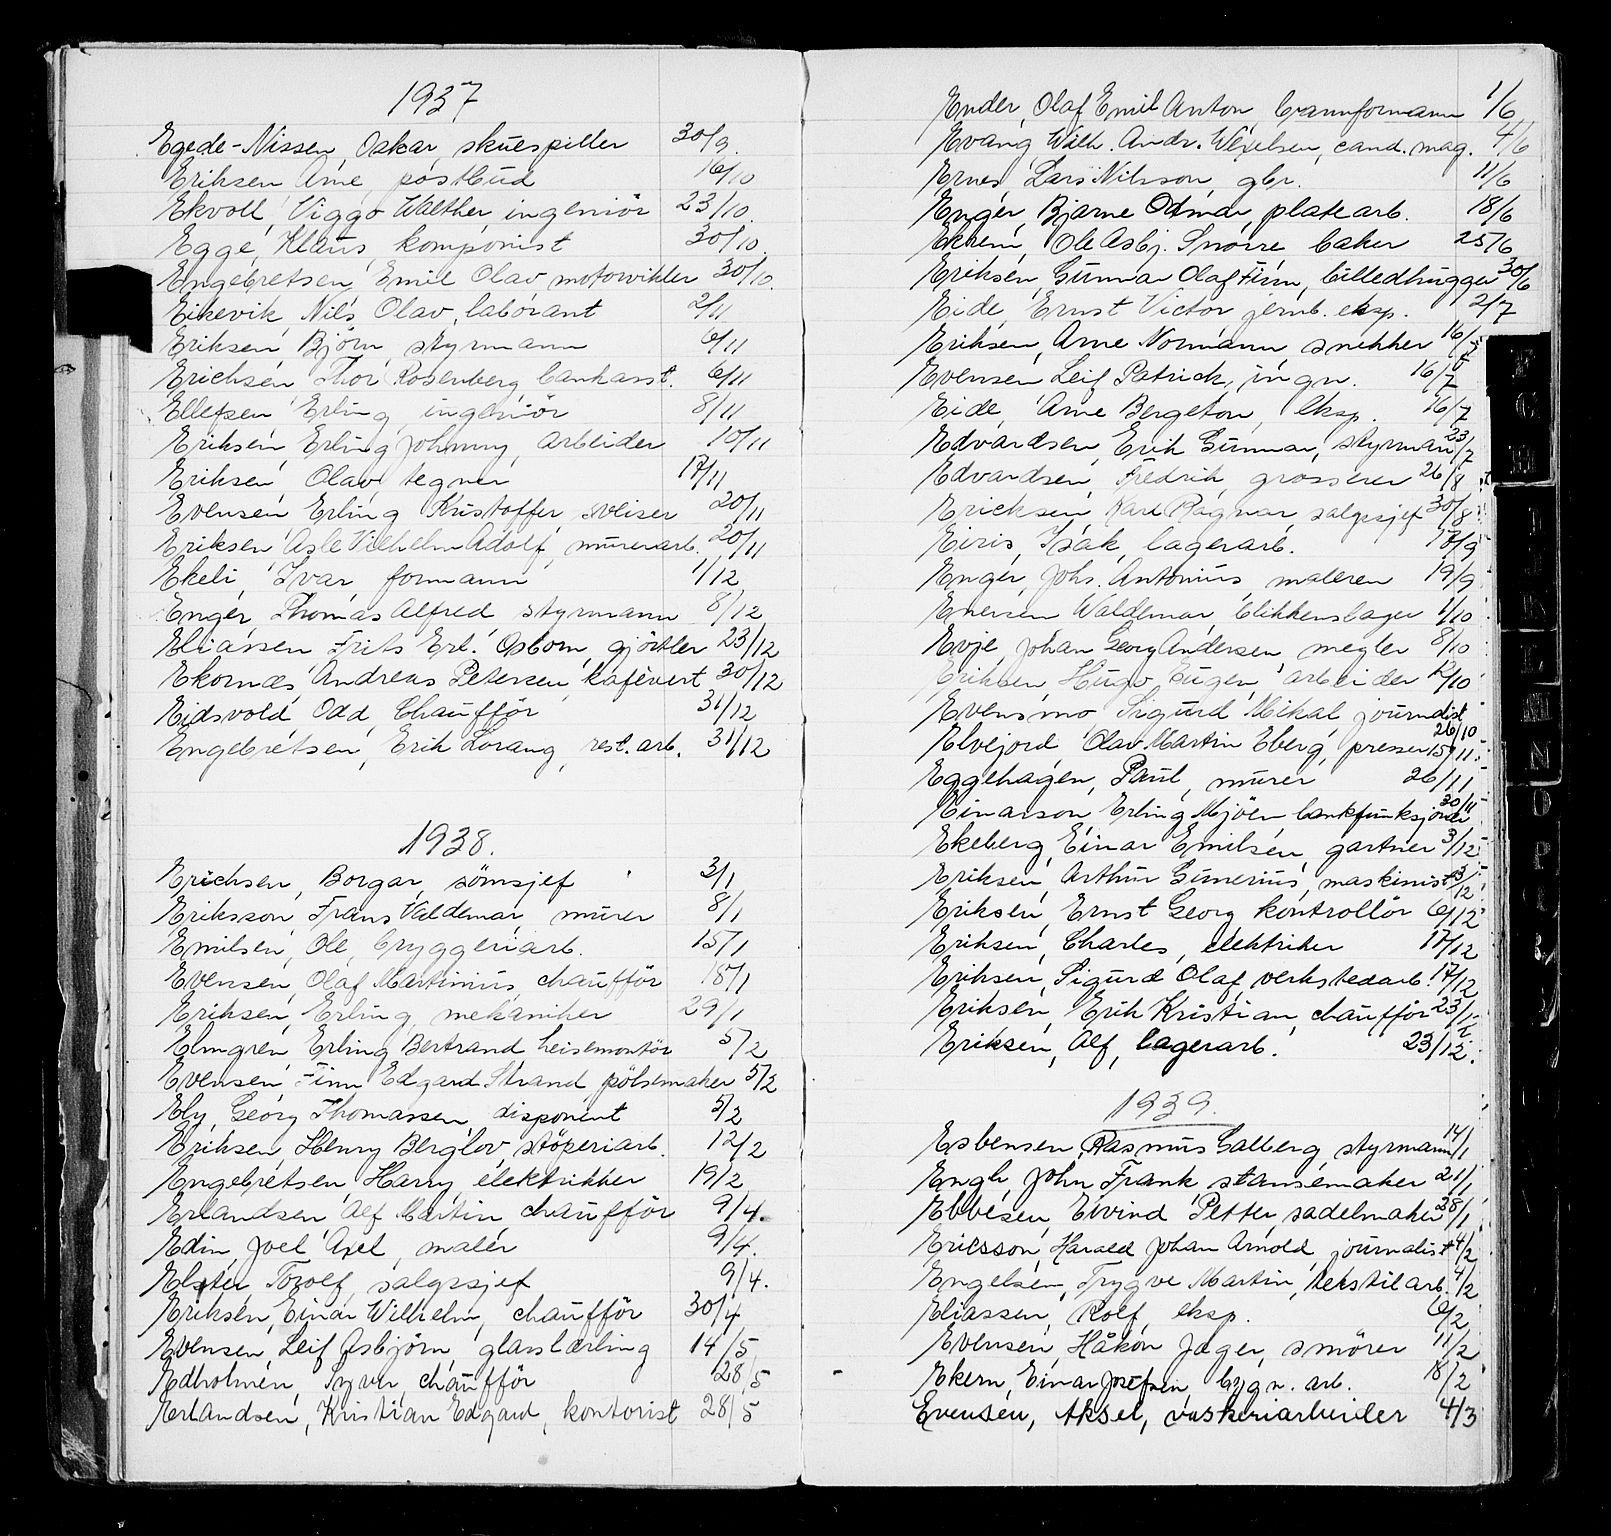 1937
Egede-Nissen, Oskar, skuespiller 30/9.
Eriksen Arne, postbud 16/10
Ekvoll, Viggo Walther, ingeniör 23/10.
Egge, Klaus, komponist 30/10.
Engebretsen, Emil Olav motorvikler 30/10.
Eikevik, Nils Olav, laborant 2/11
Eriksen, Björn, styrmann 6/11
Erichsen, Thor Rosenberg, bankasst. 6/11
Ellefsen, Erling, ingeniör 8/11
Eriksen, Erling Johnny, arbeider 10/11
Eriksen, Olav, tegner 17/11
Evensen, Erling Kristoffer, sveiser 20/11
Eriksen, Asle Vilhelm Adolf, murerarb. 20/11
Ekeli, Ivar, formann 1/12
Enger, Thomas Alfred styrmann 8/12
Eliassen Frits Erl. Osborn, gjörtler 23/12
Ekornæs, Andreas Petersen, kafévert 30/12
Eidsvold, Odd, Chaufför 31/12
Engebretsen, Erik Lorang, rest.arb. 31/12
1938.
Erichsen, Borgar, sömsjef 3/1
Eriksson, Frans Valdemar, murer 8/1
Emilsen, Ole, bryggeriarb. 15/1
Evensen, Olaf Martinius, chaufför 18/1
Eriksen, Erling, mekaniker 29/1
Elmgren, Erling Bertrand heisemontör 5/2
Evensen, Finn Edgard Strand pölsemaker 5/2
Ely, Georg Thomassen, disponent 5/2
Eriksen, Henry Berglov, stöperiarb. 12/2
Engebretsen, Harry, elektrikker 19/2
Erlandsen, Alf Martin, chaufför 9/4.
Edin, Joel Axel, maler 9/4.
Elster, Torolf, salgssjef 9/4.
Eriksen, Einar Wilhelm, chaufför 30/4
Evensen, Leif Asbjörn, glasslærling 14/5
Edholmen, Syver, chaufför 28/5
Erlandsen, Kristian Edgard, kontorist 28/5
Ender, Olaf Emil Anton, brannformann 1/6
Evang, Wilh. Andr. Wexelsen, cand. mag. 4/6
Ernes, Lars Nilsson, gbr. 11/6
Enger, Bjarne Odmar, platearb. 18/6
Ekrem, Ole Asbj. Snorre baker 25/6
Eriksen, Gunnar Olaf Finn, billedhugger 30/6
Eide, Ernst Victor jernb. eksp. 2/7
Eriksen, Arne Normann snekker 16/7
Evensen Leif Patrick, ingn. 16/7
Eide, Arne Bergeton, eksp. 16/7
Edvardsen, Erik Gunnar, styrmann 23/7
Edvardsen, Fredrik, grosserer 26/8
Ericksen Karl Ragnar, salgssjef 30/8
Eiris, Isak, lagerarb. 10/9
Enger, Johs. Antonius, maleren 19/9
Enersen Waldemar, blikkenslager 1/10
Evje Johan Georg Andersen, megler 8/10
Eriksen, Hugo Eugen, arbeider 12/10
Evensmo, Sigurd Mikal, journalist 26/10
Elvejord Olav Martin Eberg, presser 15/11.
Eggehagen, Paul, murer 26/11
Einarson, Erling Mjöen, bankfunksjonær 30/11
Ekeberg, Einar Emilsen, gartner 3/12
Eriksen, Arthur Gunerius, maskinist 3/12
Eriksen, Ernst Georg kontrollör 6/12
Eriksen, Charles, elektriker 17/12
Eriksen, Sigurd Olaf, verkstedarb. 17/12
Eriksen, Erik Kristian, chaufför 23/12
Eriksen, Alf, lagerarb. 23/12.
1939.
Esbensen, Rasmus Galberg, styrmann 14/1
Engh, John Frank stansemaker 21/1
Ebbesen, Eivind Petter, sadelmaker 28/1
Ericsson, Harald Johan Arnold, journalist 4/2
Engelsen, Trygve Martin, tekstilarb. 4/2
Eliassen, Rolf, eksp. 6/2
Evensen, Håkon Jager, smörer 11/2
Ekern, Einar Josefsen, bygn. arb. 18/2
Evensen, Aksel, vaskeriarbeider 4/3
F
G
H
L
M
N
O
P